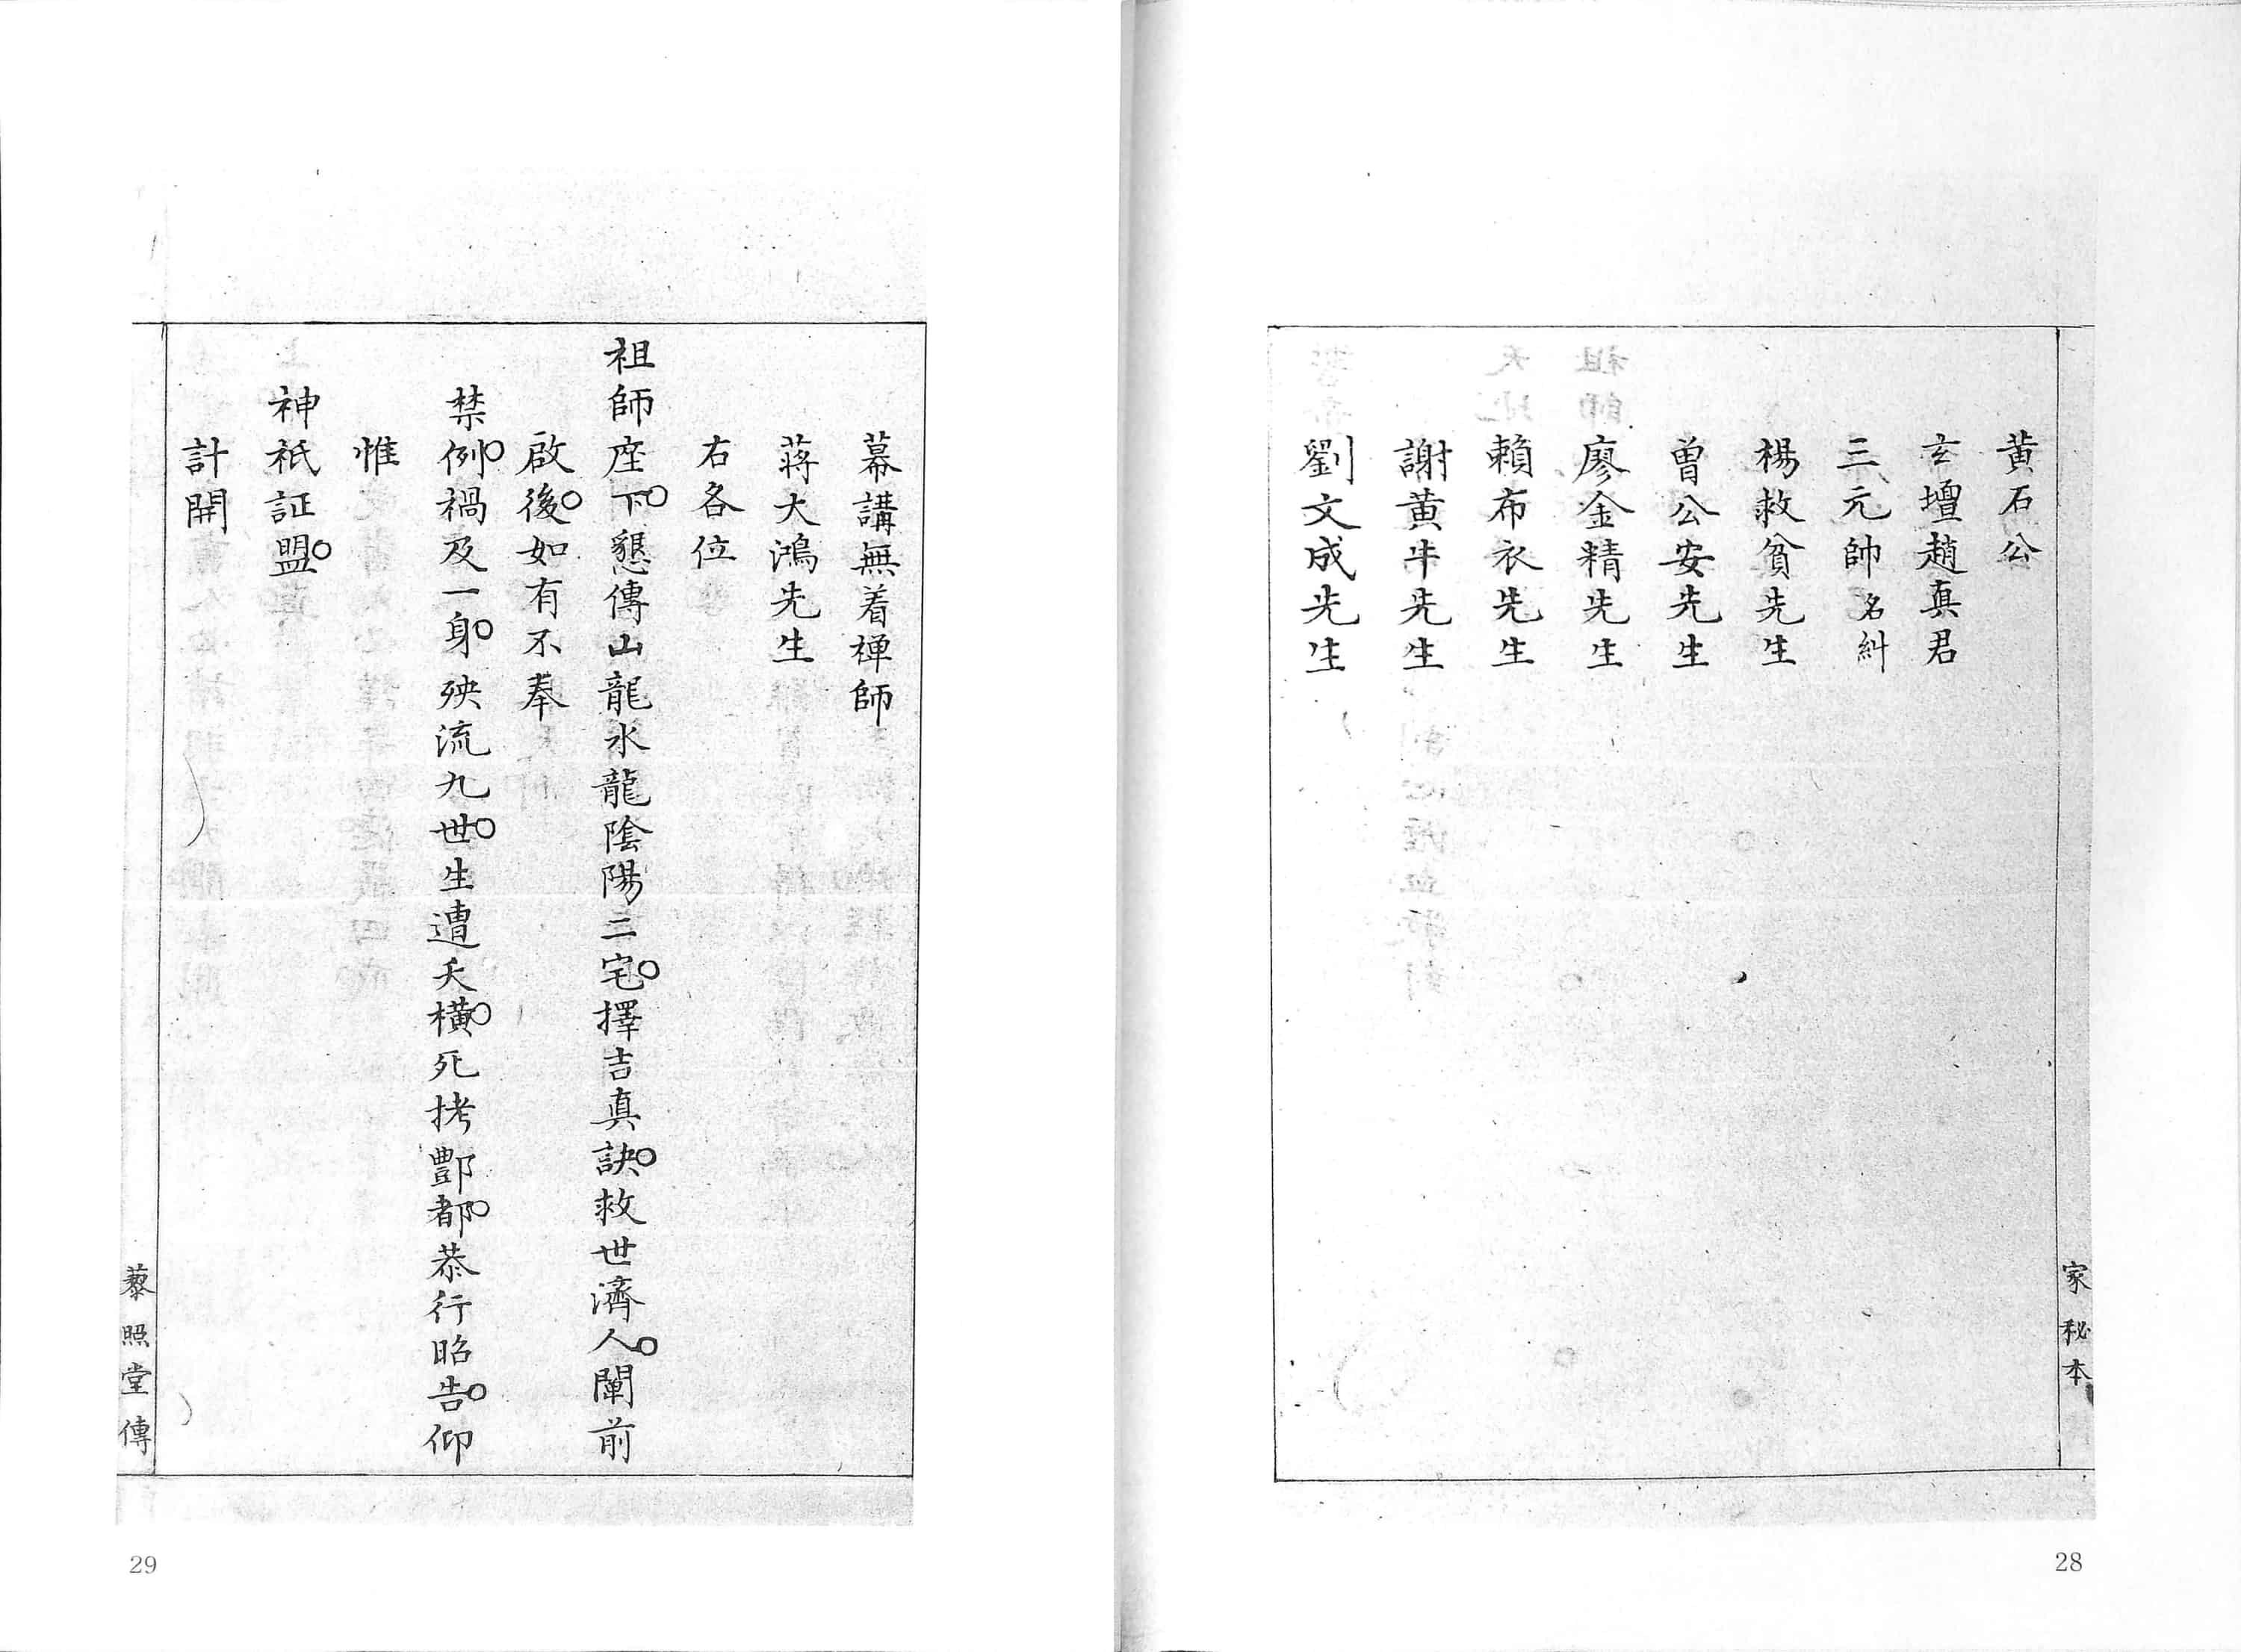 黄石公
玄壇趙真君
三元帥名糾
楊救貧先生
曾公安先生
廖金精先生
賴布衣先生
謝黄牛先生
劉文成先生
家秘本
28
幕講無着禅師
蔣大鴻先生
右各位
祖師座下○懇傳山龍水龍陰陽二宅○擇吉真訣○救世濟人○闡前
啟後○如有不奉
禁例○禍及一身○殃流九世○生遭夭橫○死拷酆都○恭行昭告○仰
惟
神祇証盟○
計開
藜照堂傳
29